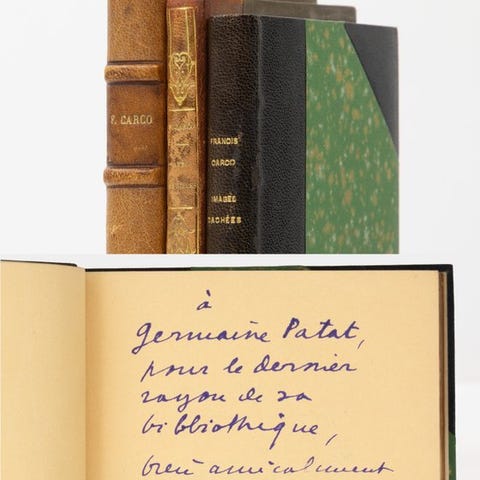 F. CARCO
FRANCIS
CARCO
IMAGES
CACHÉES
à
Germaine Patat,
pour le dernier
rayon de sa
bibbliothèque,
bien amicalement